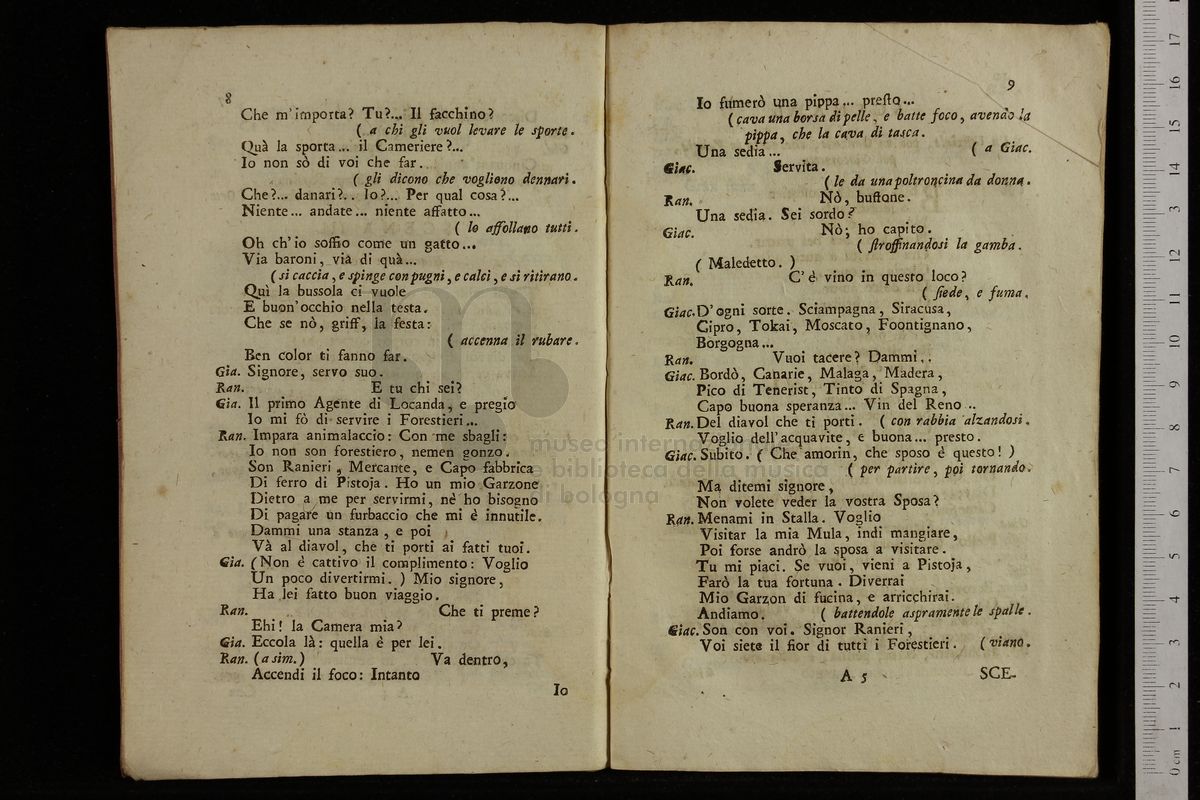 8
Che m'importa? Tu?... Il facchino?
( a chi gli vuol levare le sporte.
Quà la sporta... il Cameriere?...
Io non sò di voi che far.
( gli dicono che vogliono dennari.
Che?... danari?.. Io?... Per qual cosa?...
Niente... andate... niente affatto...
( lo affollano tutti.
Oh ch'io soffio come un gatto...
Via baroni, via di quà...
( si caccia, e spinge con pugni, e calci, e si ritirano.
Quì la bussola ci vuole
E buon'occhio nella testa.
Che se nò, griff, la festa:
( accenna il rubare.
Ben color ti fanno far.
Gia. Signore, servo suo.
Ran. E tu chi sei?
Gia. Il primo Agente di Locanda, e pregio
Io mi fò di servire i Forestieri...
Ran. Impara animalaccio: Con me sbagli:
Io non son forestiero, nemen gonzo.
Son Ranieri, Mercante, e Capo fabbrica
Di ferro di Pistoja. Ho un mio Garzone
Dietro a me per servirmi, nè ho bisogno
Di pagare un furbaccio che mi è innutile.
Dammi una stanza, e poi
Và al diavol, che ti porti ai fatti tuoi.
Gia. (Non è cattivo il complimento: Voglio
Un poco divertirmi.) Mio signore,
Ha lei fatto buon viaggio.
Ran. Che ti preme?
Ehi! la Camera mia?
Gia. Eccola là: quella è per lei.
Ran. (a sim.) Va dentro,
Accendi il foco: Intanto
Io
9
Io fumerò una pippa... presto...
( cava una borsa di pelle, e batte foco, avendo la
pippa, che la cava di tasca.
Una sedia... ( a Giac.
Giac. Servita.
( le da una poltroncina da donna.
Ran. Nò, buffone.
Una sedia. Sei sordo?
Giac. Nò; ho capito.
( stroffinandosi la gamba.
( Maledetto. )
Ran. C'è vino in questo loco?
( siede, e fuma.
Giac. D'ogni sorte. Sciampagna, Siracusa,
Cipro, Tokai, Moscato, Foontignano,
Borgogna...
Ran. Vuoi tacere? Dammi..
Giac. Bordò, Canarie, Malaga, Madera,
Pico di Tenerist, Tinto di Spagna,
Capo buona speranza... Vin del Reno..
Ran. Del diavol che ti porti. ( con rabbia alzandosi.
Voglio dell'acquavite, e buona... presto.
Giac. Subito. ( Che amorin, che sposo è questo! )
( per partire, poi tornando.
Ma ditemi signore,
Non volete veder la vostra Sposa?
Ran. Menami in Stalla. Voglio
Visitar la mia Mula, indi mangiare,
Poi forse andrò la sposa a visitare.
Tu mi piaci. Se vuoi, vieni a Pistoja,
Farò la tua fortuna. Diverrai
Mio Garzon di fucina, e arricchirai.
Andiamo. ( battendole aspramente le spalle.
Giac. Son con voi. Signor Ranieri,
Voi siete il fior di tutti i Forestieri. ( viano.
A 5 SCE-
museo internazionale
e biblioteca della musica
di bologna
0 cm 1 2 3 4 5 6 7 8 9 10 11 12 13 14 15 16 17